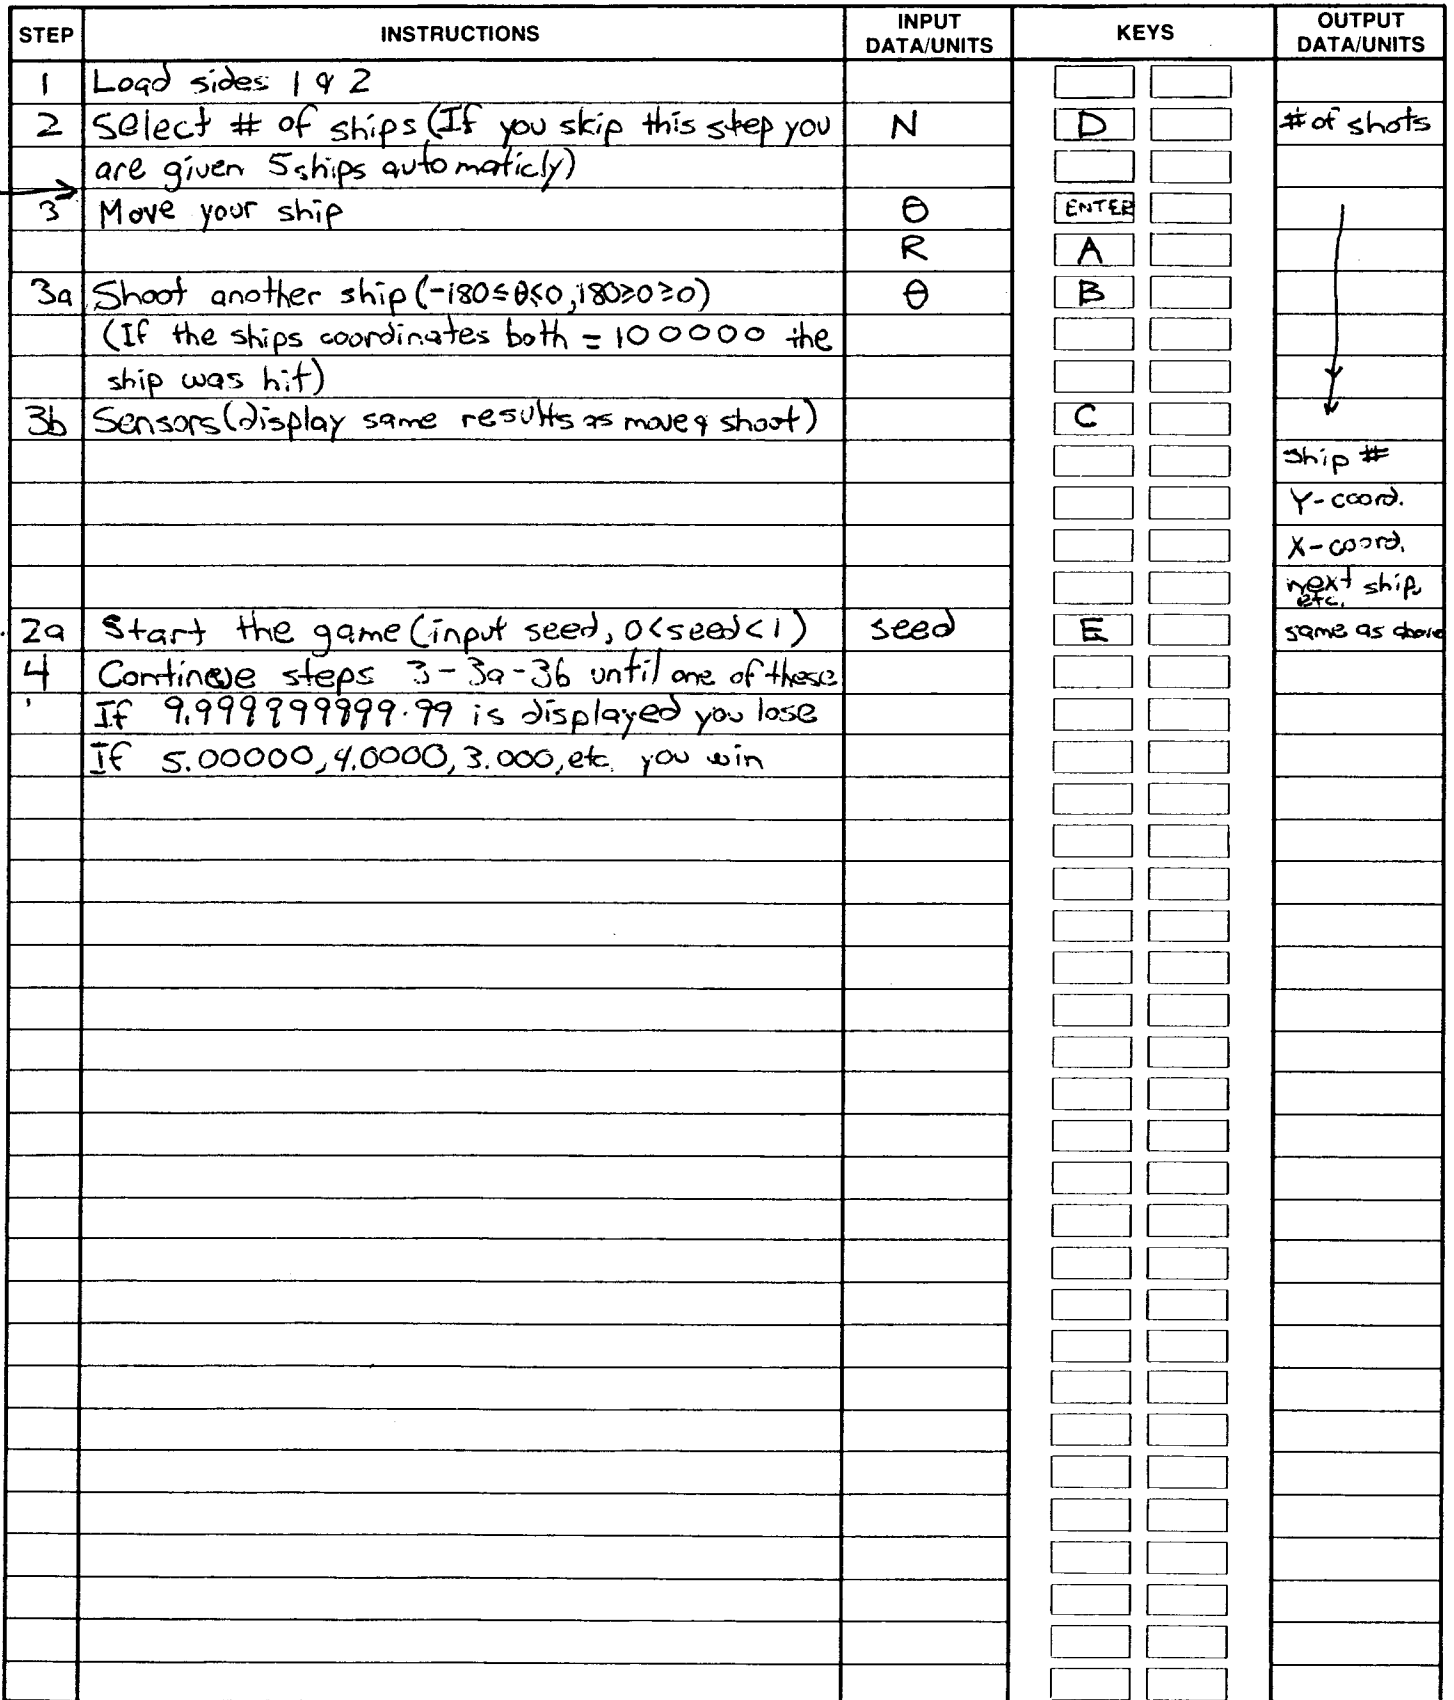 STEP INSTRUCTIONS INPUT DATA/UNITS KEYS OUTPUT DATA/UNITS
1 Load sides 1 & 2
2 Select # of ships (If you skip this step you N D # of shots
are given 5 ships automaticly)
3 Move your ship θ ENTER
R A
3a Shoot another ship (-180≤θ≤0, 180≥θ≥0) θ B
(If the ships coordinates both = 100000 the
ship was hit)
3b Sensors (display same results as move & shoot) C
ship #
Y-coord.
X-coord.
next ship, etc.
2a Start the game (input seed, 0<seed<1) seed E same as above
4 Continue steps 3-3a-3b until one of these
If 9.999999999.99 is displayed you lose
If 5.00000, 4.0000, 3.000, etc. you win